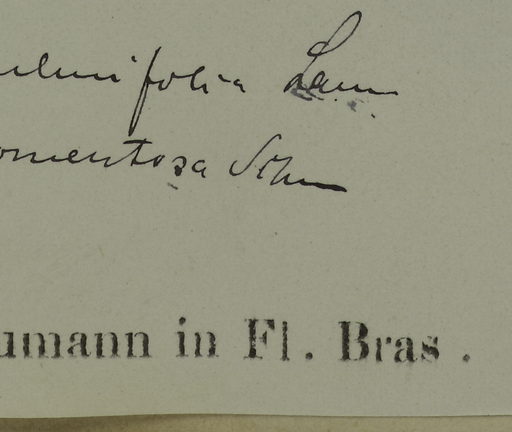 ulmifolia Lam
omentosa Schm
umann in Fl. Bras.